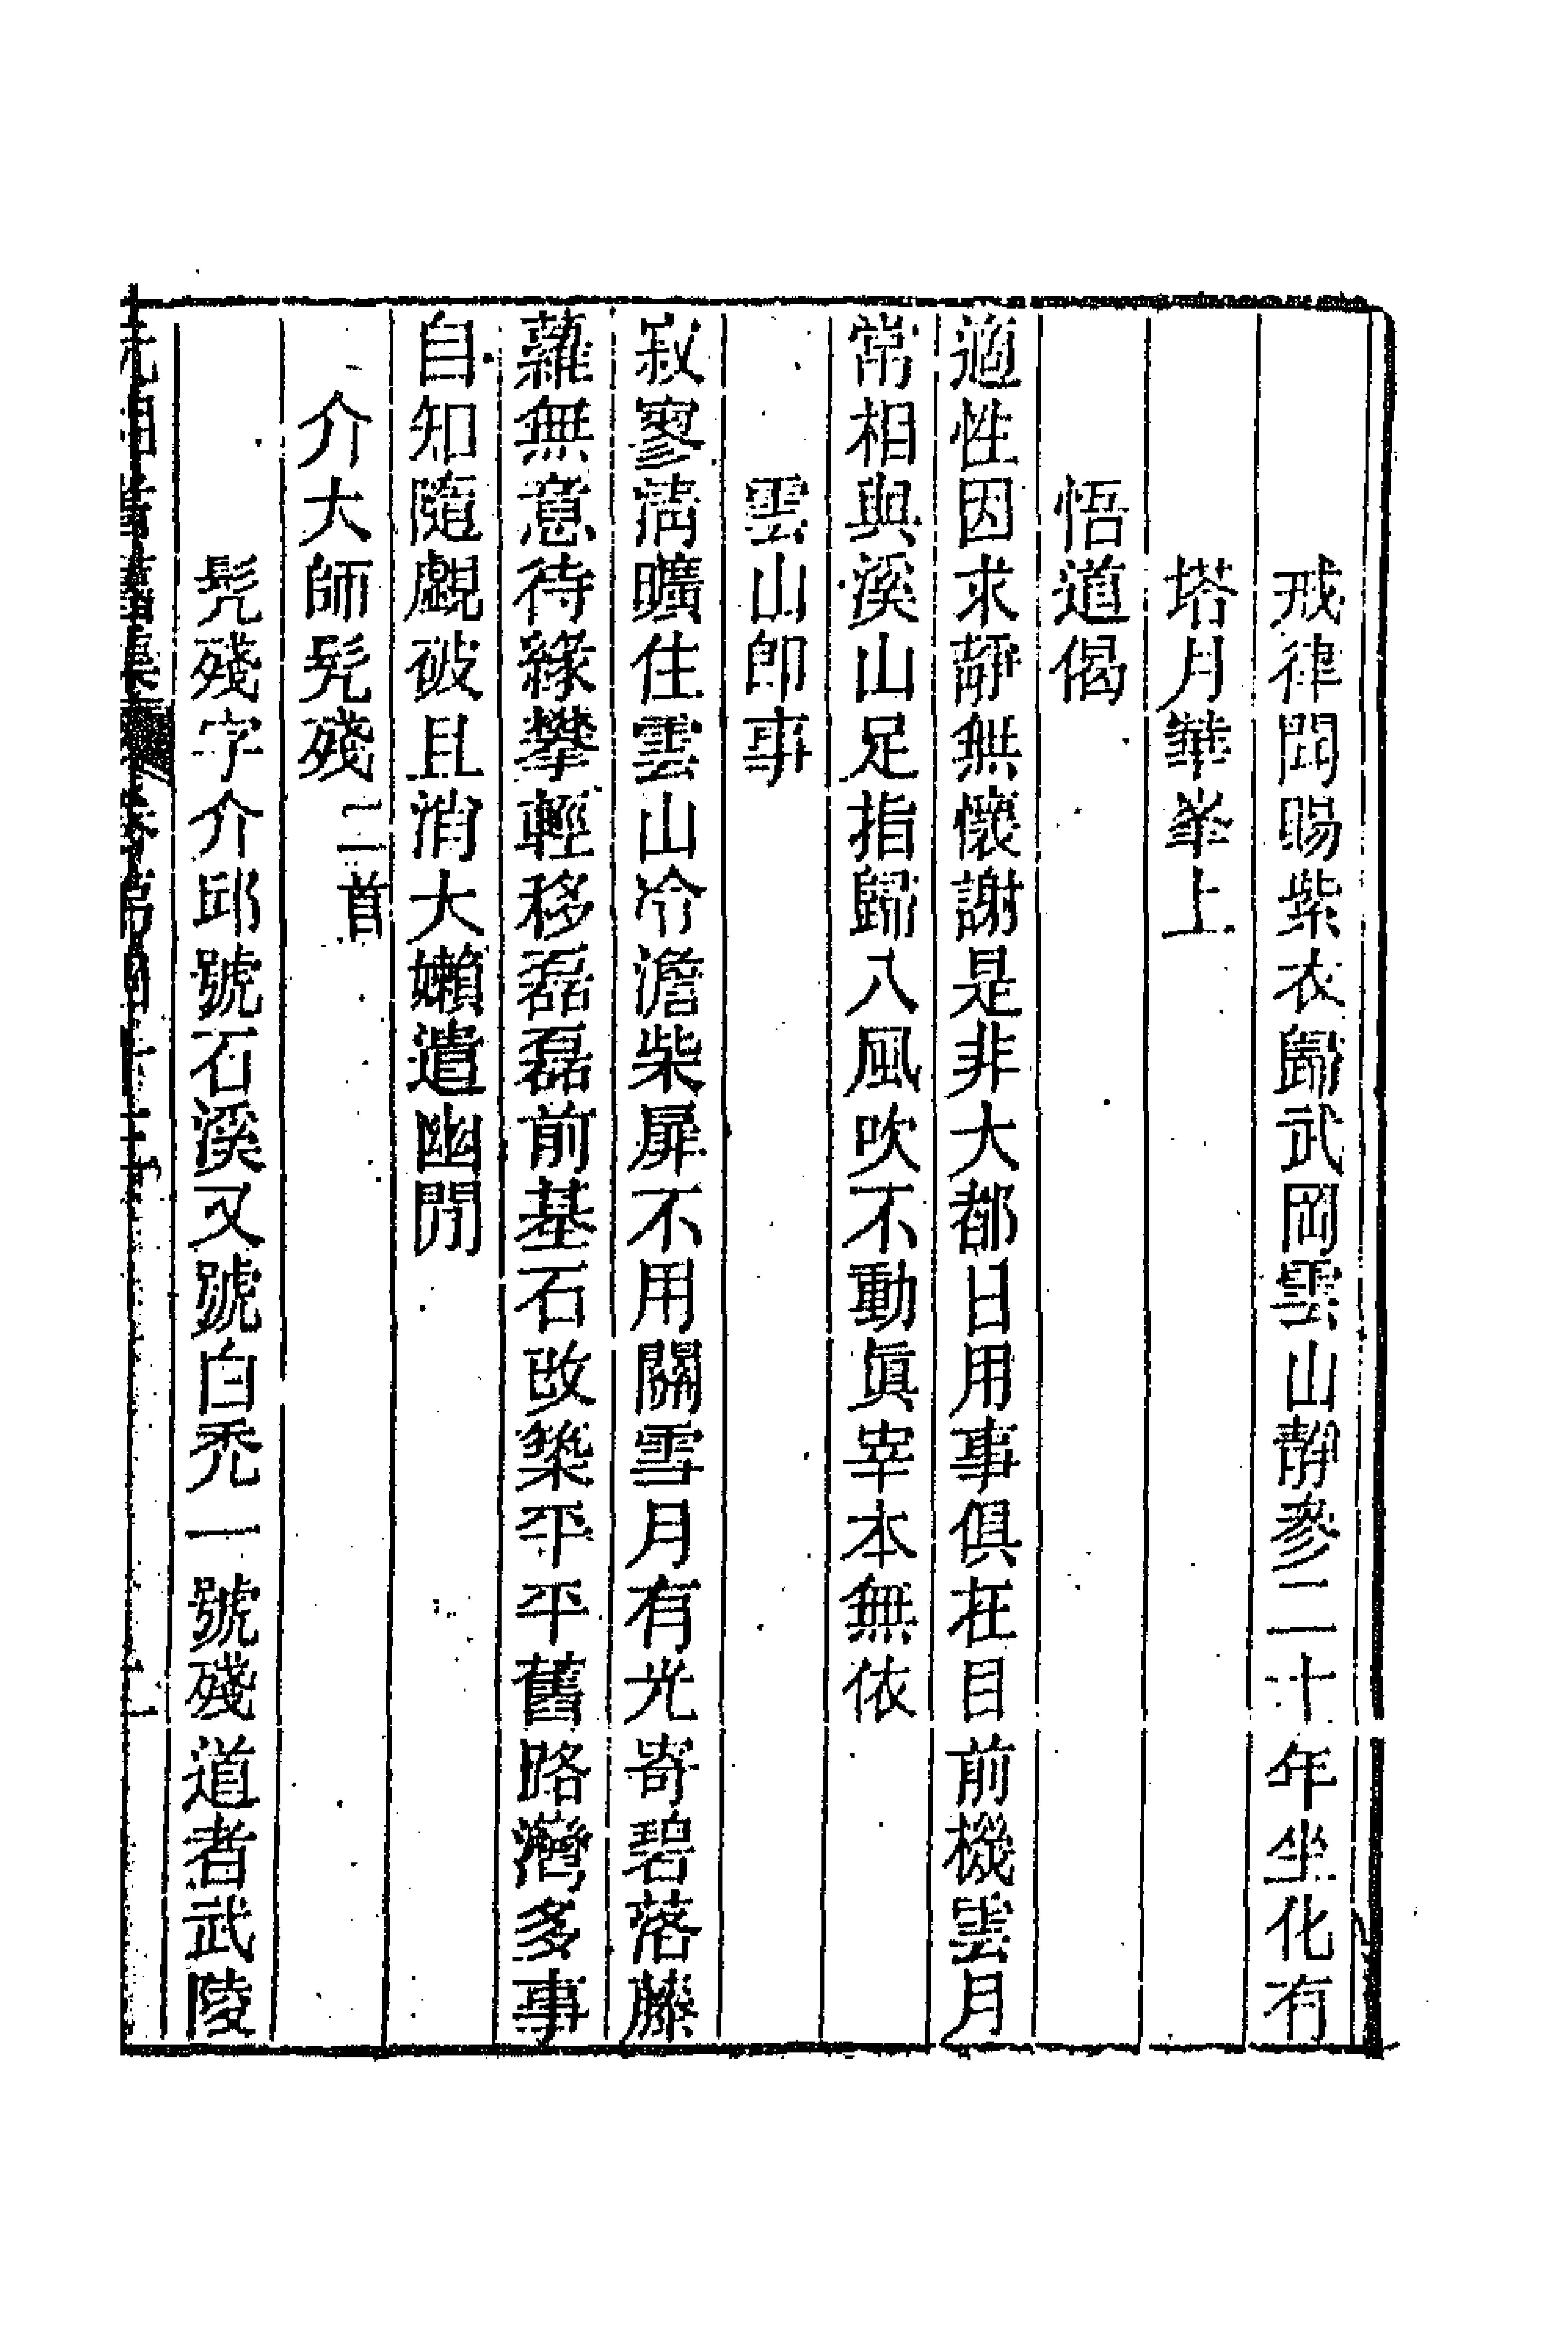 戒律閎賜紫衣歸武岡雲山靜參二十年坐化有
塔月華峯上
悟道偈
適性因求靜無懷謝是非大都日用事俱在目前機雲月
常相與溪山足指歸八風吹不動眞宰本無依
雲山卽事
寂寥淸曠住雲山冷澹柴扉不用關雪月有光寄碧落藤
蘿無意待緣攀輕移磊磊前基石改築平平舊路灣多事
自知隨覷破且消大嬾遣幽閒
介大師髡殘二首
髡殘字介邱號石溪又號白禿一號殘道者武陵